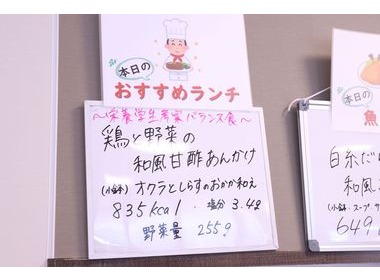 本日の
おすすめランチ
～栄養学生考案バランス食～
鶏と野菜の
和風甘酢あんかけ
(小鉢)オクラとしらすのおかか和え
835kcal・塩分 3.4g
野菜量 255g
本日の
魚
白糸だ
和風
(小鉢・スープ・サ
649